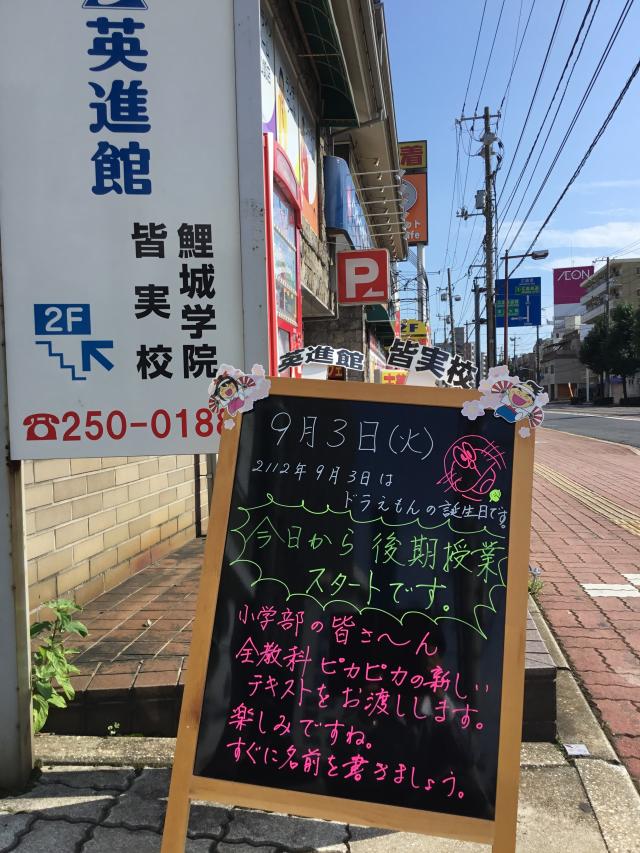 英進館
鯉城学院
皆実校
2F
☎250-0188
P
AEON
英進館 皆実校
9月3日(火)
2112年9月3日は
ドラえもんの誕生日です。
今日から後期授業
スタートです。
小学部の皆さ〜ん
全教科ピカピカの新しい
テキストをお渡しします。
楽しみですね。
すぐに名前を書きましょう。